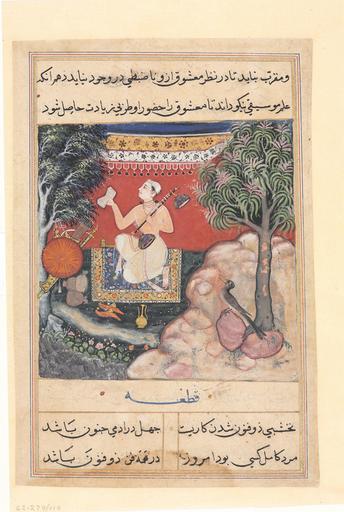 و مقرب نباید تا در نظر معشوق از و ناضبطی در وجود نیاید دهر آنکه
علم موسیقی نیکو داند تا معشوق را حضور او طربی زیادت حاصل شود
قطعه
نخشبی ذوفنون شدن کاریست جهل در آدمی جنون باشد
مرد کامل کسی بود امروز در همه فن ذوفنون باشد
62.279/